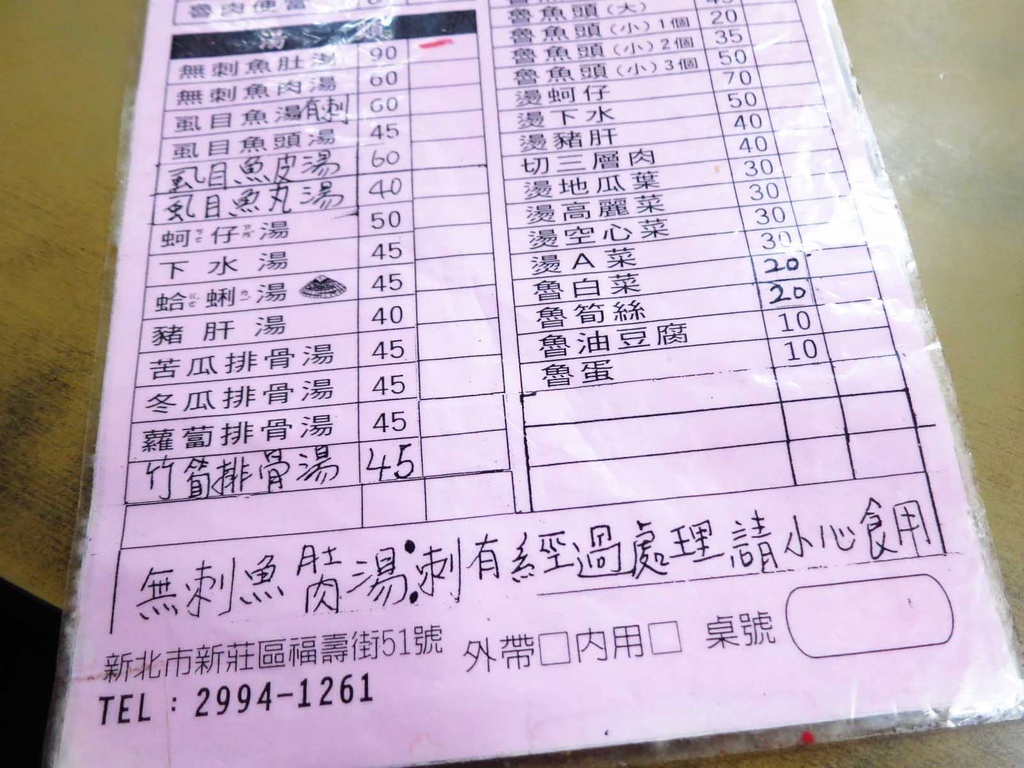 魯肉便當
湯
無刺魚肚湯 90
無刺魚肉湯 60
虱目魚湯有刺 60
虱目魚頭湯 45
虱目魚皮湯 60
虱目魚丸湯 40
蚵仔湯 50
下水湯 45
蛤蜊湯 45
豬肝湯 40
苦瓜排骨湯 45
冬瓜排骨湯 45
蘿蔔排骨湯 45
竹筍排骨湯 45
魯魚頭(大)
魯魚頭(小)1個 20
魯魚頭(小)2個 35
魯魚頭(小)3個 50
燙蚵仔 70
燙下水 50
燙豬肝 40
切三層肉 40
燙地瓜葉 30
燙高麗菜 30
燙空心菜 30
燙A菜 30
魯白菜 20
魯筍絲 20
魯油豆腐 10
魯蛋 10
無刺魚肚肉湯:刺有經過處理請小心食用
新北市新莊區福壽街51號 外帶□內用□ 桌號
TEL：2994-1261